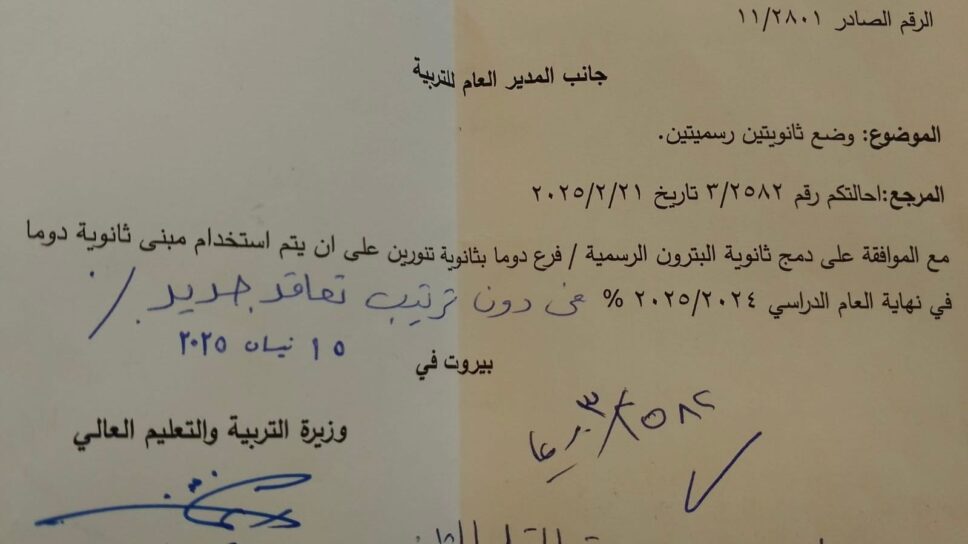 الرقم الصادر ١١/٢٨٠١
جانب المدير العام للتربية
الموضوع: وضع ثانويتين رسميتين.
المرجع:احالتكم رقم ٣/٢٥٨٢ تاريخ ٢٠٢٥/٢/٢١
مع الموافقة على دمج ثانوية البترون الرسمية / فرع دوما بثانوية تنورين على ان يتم استخدام مبنى ثانوية دوما
في نهاية العام الدراسي ٢٠٢٥/٢٠٢٤ % دون ترتيب تعاقد جديد ./
بيروت في ١٥ نيسان ٢٠٢٥
٣/٢٥٨٢
وزيرة التربية والتعليم العالي